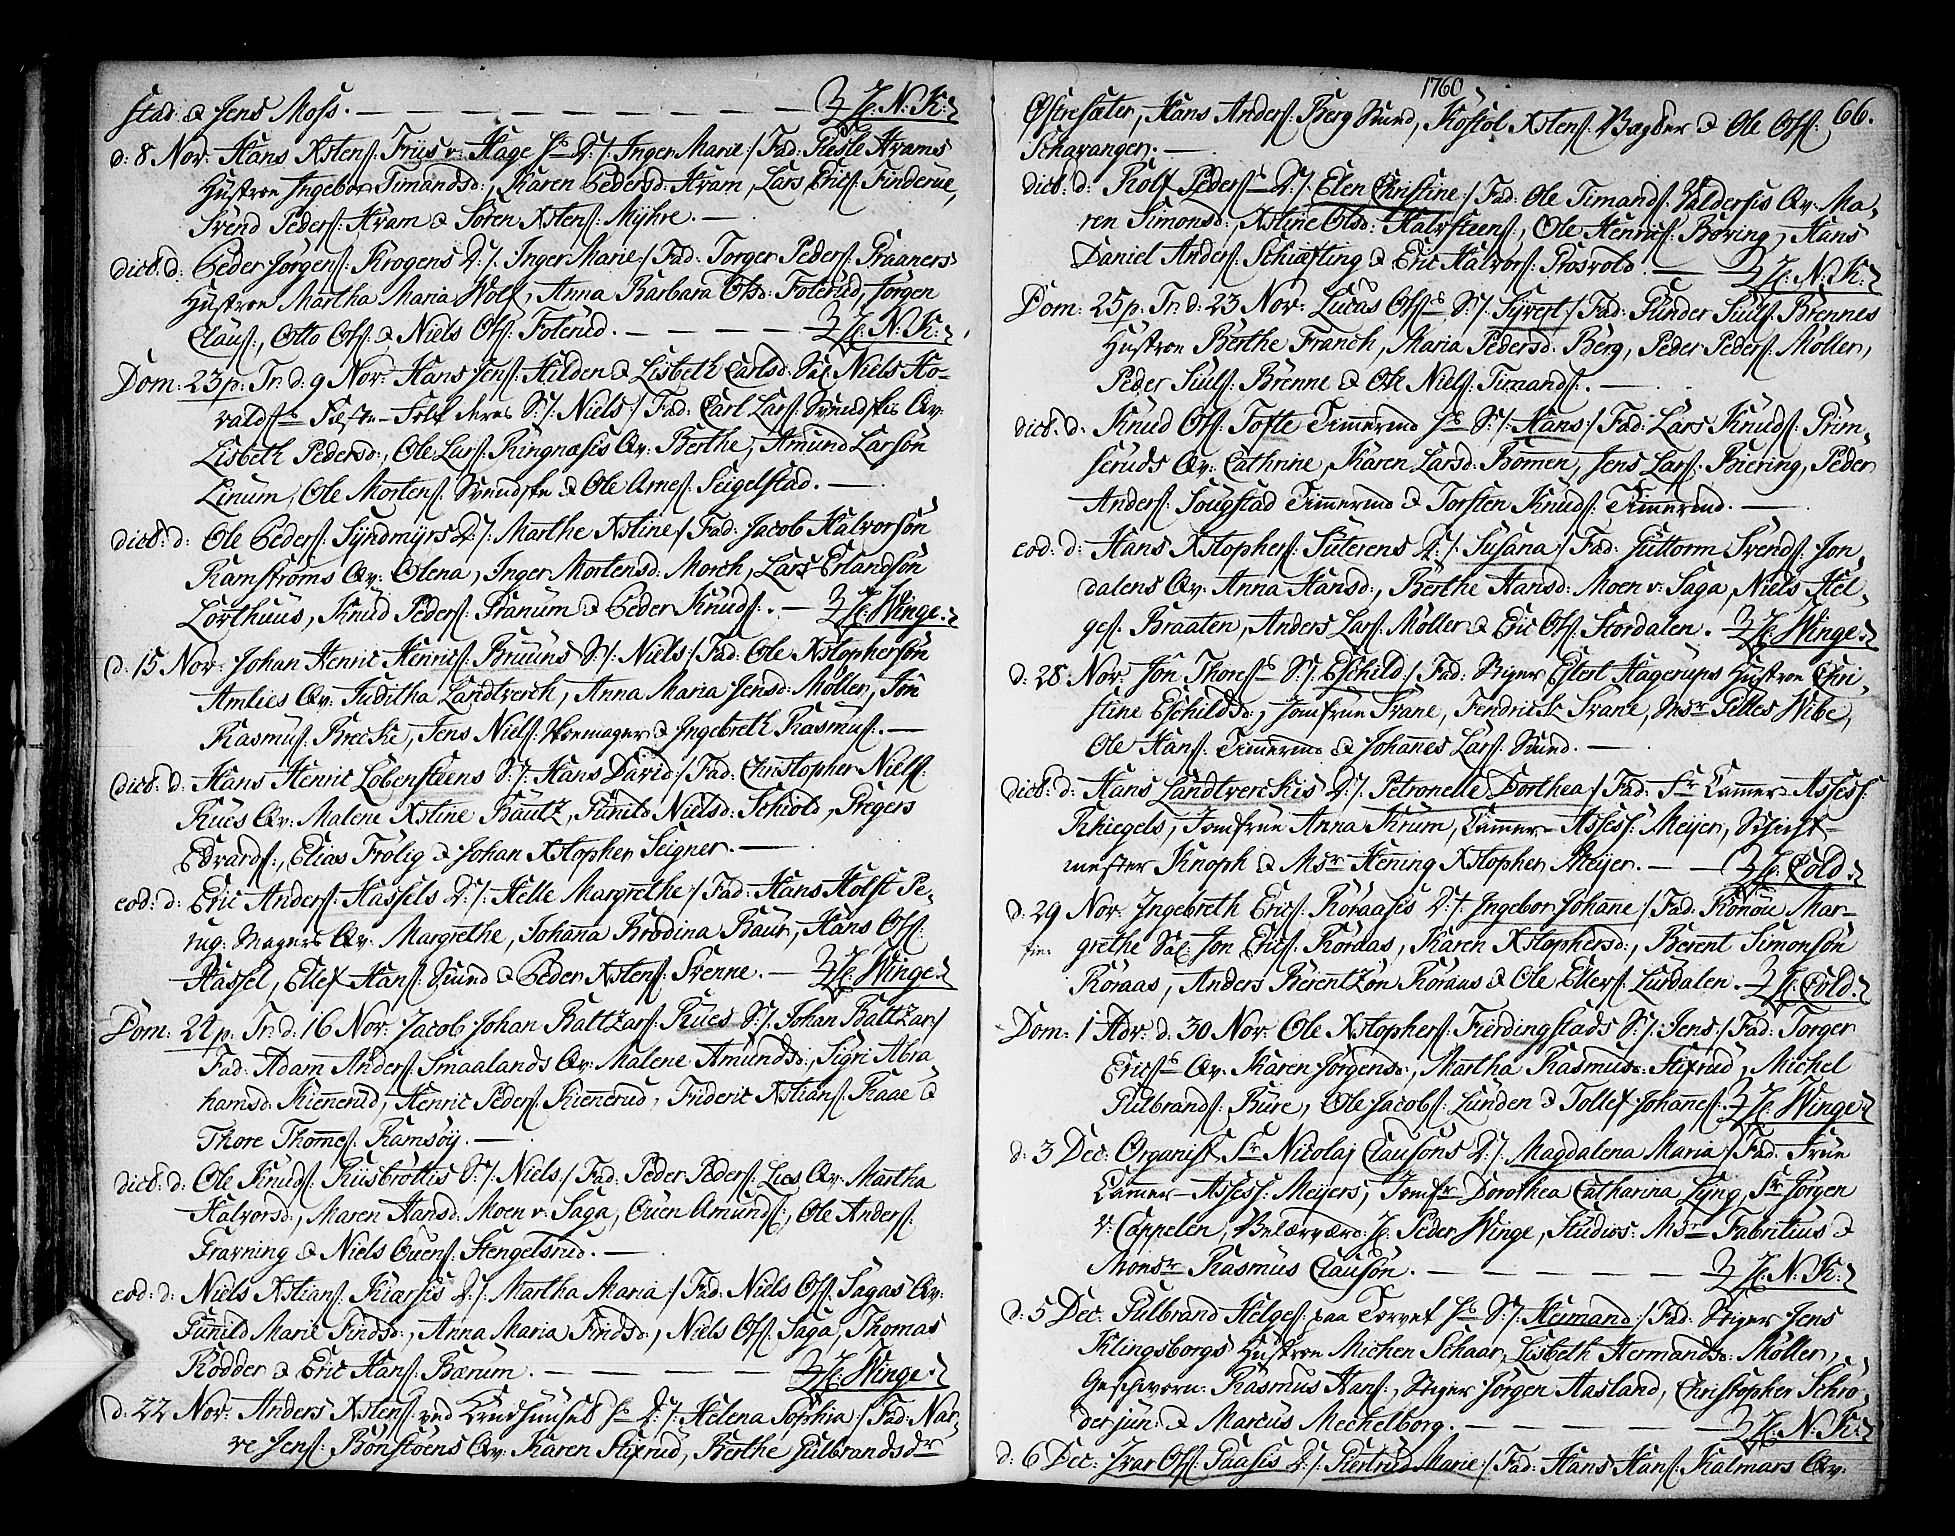 stad: & Jens Moss. — — — — — — — H: N: K:
d: 8 Nov: Hans Xstens: Friis v: Hage D:/: Inger Marie:/ Fad: Giesle Hrams
Hustroe Ingebor Timandsd:, Karen Pedersd: Hram, Lars Erics: Finderue,
Svend Peders: Hram & Sören Xstens: Myhre. —
dict: d: Peder Jörgens: Krogens D:/: Inger Marie:/ Fad: Torger Peders: Praaners
Hustroe Martha Maria Wolf, Anna Barbara Olsd: Foterud, Jörgen
Claus:, Otto Ols: & Niels Ols: Foterud. — — — — H: N: K:
Dom: 23 p: Tr: d: 9 Nov: Hans Jens: Hilden & Lisbeth Carlsd: Sal: Niels Ho-
valds: Fæste-Folk deres S:/: Niels:/ Fad: Carl Lars: Svendskes Qv:
Lisbeth Pedersd:, Ole Lars: Ringnæsis Qv: Berthe, Amund Larsön
Linum, Ole Mortens: Svendske & Ole Arnes: Seigelstad. —
dict: d: Ole Peders: Syndmyrs D:/: Marthe Xstine:/ Fad: Jacob Halvorsön
Ramströms Qv: Olena, Inger Mortensd: Morch, Lars Erlandsön
Lorthuus, Knud Peders: Granum & Peder Knuds:. — H: Winge:
d: 15 Nov: Johan Henric Henrics: Bruuns S:/: Niels:/ Fad: Ole Xstophersön
Amlies Qv: Juditha Landtverch, Anna Maria Jensd: Möller, Jön
Rasmus: Brecke, Jens Niels: & Ingebreth Rasmus:. —
dict: d: Hans Henric Lobensteens S:/: Hans David:/ Fad: Christopher Niels:
Rues Qv: Malene Xstine Bautz, Gunild Nielsd: Schiold, Gregers
Edvards:, Elias Frölig & Johan Xstopher Seigner. —
eod: d: Eric Anders: Hassels D:/: Helle Margrethe:/ Fad: Hans Holst Pe-
rug: Magers Qv: Margrethe, Johanna Brodina Baur, Hans Ols:
Hassel, Ellef Hans: Sund & Peder Xstens: Svenne. — H: Winge:
Dom: 24 p: Tr: d: 16 Nov: Jacob Johan Baltzars: Rues S:/: Johan Baltzar:/
Fad: Adam Anders: Smaalands Qv: Malene Amundsd:, Sigri Abra
hamsd: Kiennerud, Henric Peders: Kiennerud, Frideric Xstians: Raae &
Thore Thomes: Ramsöy. —
dict: d: Ole Knuds: Riisbröttis S:/: Niels:/ Fad: Peder Peders: Lies Qv: Martha
Halvorsd:, Maren Hansd: Moen v: Saga, Ouen Amunds:, Ole Anders:
Gravning & Niels Ouens: Stengelsrud. —
eod: d: Niels Xstians: Kiærsis D:/: Martha Maria:/ Fad: Niels Ols: Sagas Qv:
Gunild Marie Findsd:, Anna Maria Findsd:, Niels Ols: Saga, Thomas
Rodder & Eric Hans: Bærum. — — — — H: Winge:
d: 22 Nov: Anders Xstens: ved D:/: Helena Sophia:/ Fad: Nar-
ve Jens: Bönstöens Qv: Karen Stixrud, Berthe Gulbrandsdr
1760
66.
Östresæter, Hans Anders: Berg Sund, Köstol Xstens: Bagker & Ole Ols:
Schavangen. —
dict: d: Rolf Peders: D:/: Elen Christine:/ Fad: Ole Timands: Valdersis Qv: Ma-
ren Simonsd:, Xstine Olsd: Halvsteens:, Ole Henrics: Böring, Hans
Daniel Anders: Schiæfling & Eric Halvors: Prosvold. — H: N: K:
Dom: 25 p: Tr: d: 23 Nov: Lucas Ols: S:/: Syvert:/ Fad: Gunder Siuls: Brennes
Hustroe Berthe Franch, Maria Pedersd: Berg, Peder Peders: Möller,
Peder Siuls: Brenne & Ole Niels: Timands:. —
dict: d: Knud Ols: Tofte Timmermd S:/: Hans:/ Fad: Lars Knuds: Prim-
seruds Qv: Cathrine, Karen Larsd: Bömen, Jens Lars: Biering, Peder
Anders: Sougstad Timmermd & Torsten Knuds: Timmermd. —
eod: d: Hans Xstophers: Suterens D:/: Susana:/ Fad: Guttorm Svends: Jon-
dalens Qv: Anna Hansd:, Berthe Hansd: Moen v: Saga, Niels Hel-
ges: Braaten, Anders Lars: Möller & Eric Ols: Stordalen. — H: Winge:
d: 28 Nov: Jon Thores: S:/: Eschild:/ Fad: Stiger Estert Hagerups Hustroe Chri-
stine Eschildsd:, Jomfrue Trane, Fendrick Trane, Msr Pelles Wibe,
Ole Hans: Timmermd & Johannes Lars: Sund. —
dict: d: Hans Landtverckis D:/: Petronelle Dorthea:/ Fad: Fr Cammer-Assess:
Khiegels, Jomfrue Anna Krum, Cammer-Assess: Meijer, Schicht-
mester Knoph & Msr Hening Xstopher Meijer. — — H: Cold:
d: 29 Nov: Ingebreth Erics: Röraasis D:/: Ingebor Johane:/ Fad: Ronou Mar-
grethe Sal: Jon Erics: Röraas, Karen Xstophersd:, Berent Simonsön
Röraas, Anders Berentzön Röraas & Ole Ellefs: Lurdalen. — H: Cold:
Dom: 1 Adv: d: 30 Nov: Ole Xstophers: Fierdingstads S:/: Jens:/ Fad: Torger
Erics: Qv: Karen Jörgensd:, Martha Rasmusd: Stixrud, Michel
Gulbrands: Bure, Ole Jacobs: Lunden & Tollef Johannes:. H: Winge:
d: 3 Dec: Organist Sr Nicolaj Clausöns D:/: Magdalena Maria:/ Fad: Frue
Cammer-Assess: Meyers, Jomfr Dorothea Catharina Lyng, Sr Jörgen
v: Cappelen, Velærværd: H: Peder Winge, Studios: Msr Fabritius &
Monsr Rasmus Clausön. — — — — — H: N: K:
d: 5 Dec: Gulbrand Helges: paa Torvet S:/: Hermand:/ Fad: Stiger Jens
Klingsborgs Hustroe Michen Schaar, Lisbeth Hermandsd: Möller,
Geschworn: Rasmus Hans:, Stiger Jörgen Aasland, Christopher Schrö-
der jun: & Marcus Mechelborg. — — — — H: N: K:
d: 6 Dec: Ivar Ols: Paasis D:/: Giertrud Marie:/ Fad: Hans Hans: Kalmars Qv: